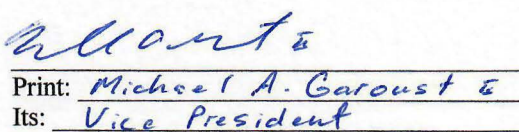 Print: Michael A. Garoust II
Its: Vice President